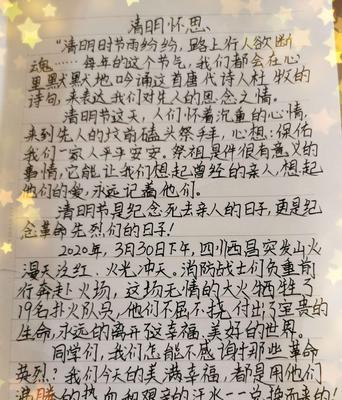 清明怀思
"清明时节雨纷纷，路上行人欲断
魂……每年的这个节气，我们都会在心
里默默地吟诵这首唐代诗人杜牧的
诗句，来表达我们对先人的思念之情。
清明节这天，人们怀着沉重的心情，
来到先人的坟前磕头祭拜，心想：保佑
我们一家人平平安安。祭祖是件很有意义的
事情，它能让我们想起曾经的亲人，想起
他们的爱，永远记着他们。
清明节是纪念死去亲人的日子，更是纪
念革命先烈们的日子！
2020年，3月30日下午，四川西昌突发山火
漫天泛红、火光冲天。消防战士们负重前
行奔赴火场，这场无情的大火牺牲了
19名扑火队员，他们不屈不挠，付出了宝贵的
生命，永远的离开这幸福、美好的世界。
同学们，我们怎能不感谢那些革命
英烈？我们今天的美满幸福，都是用他们
沸腾的热血和艰辛的汗水一一兑换而来的！